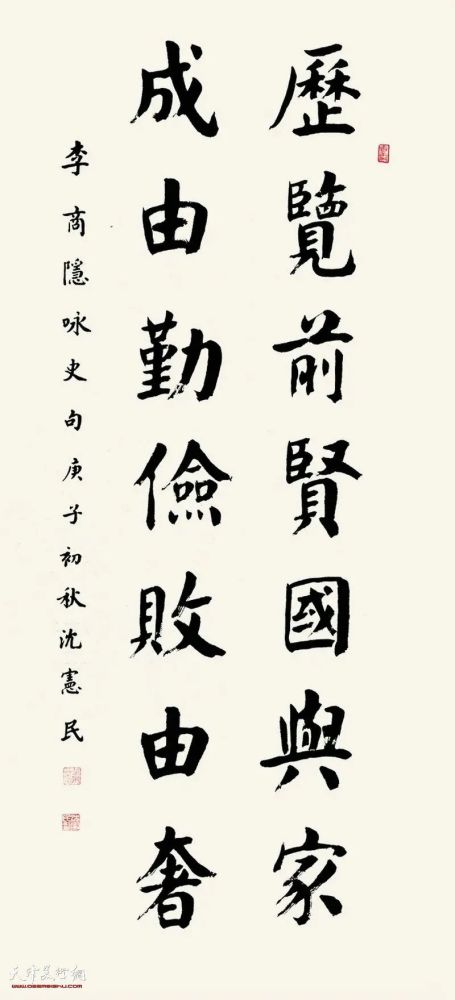 歷覽前賢國與家
成由勤儉敗由奢
李商隱咏史句庚子初秋沈憲民
天津美術網
www.tjmeishu.com